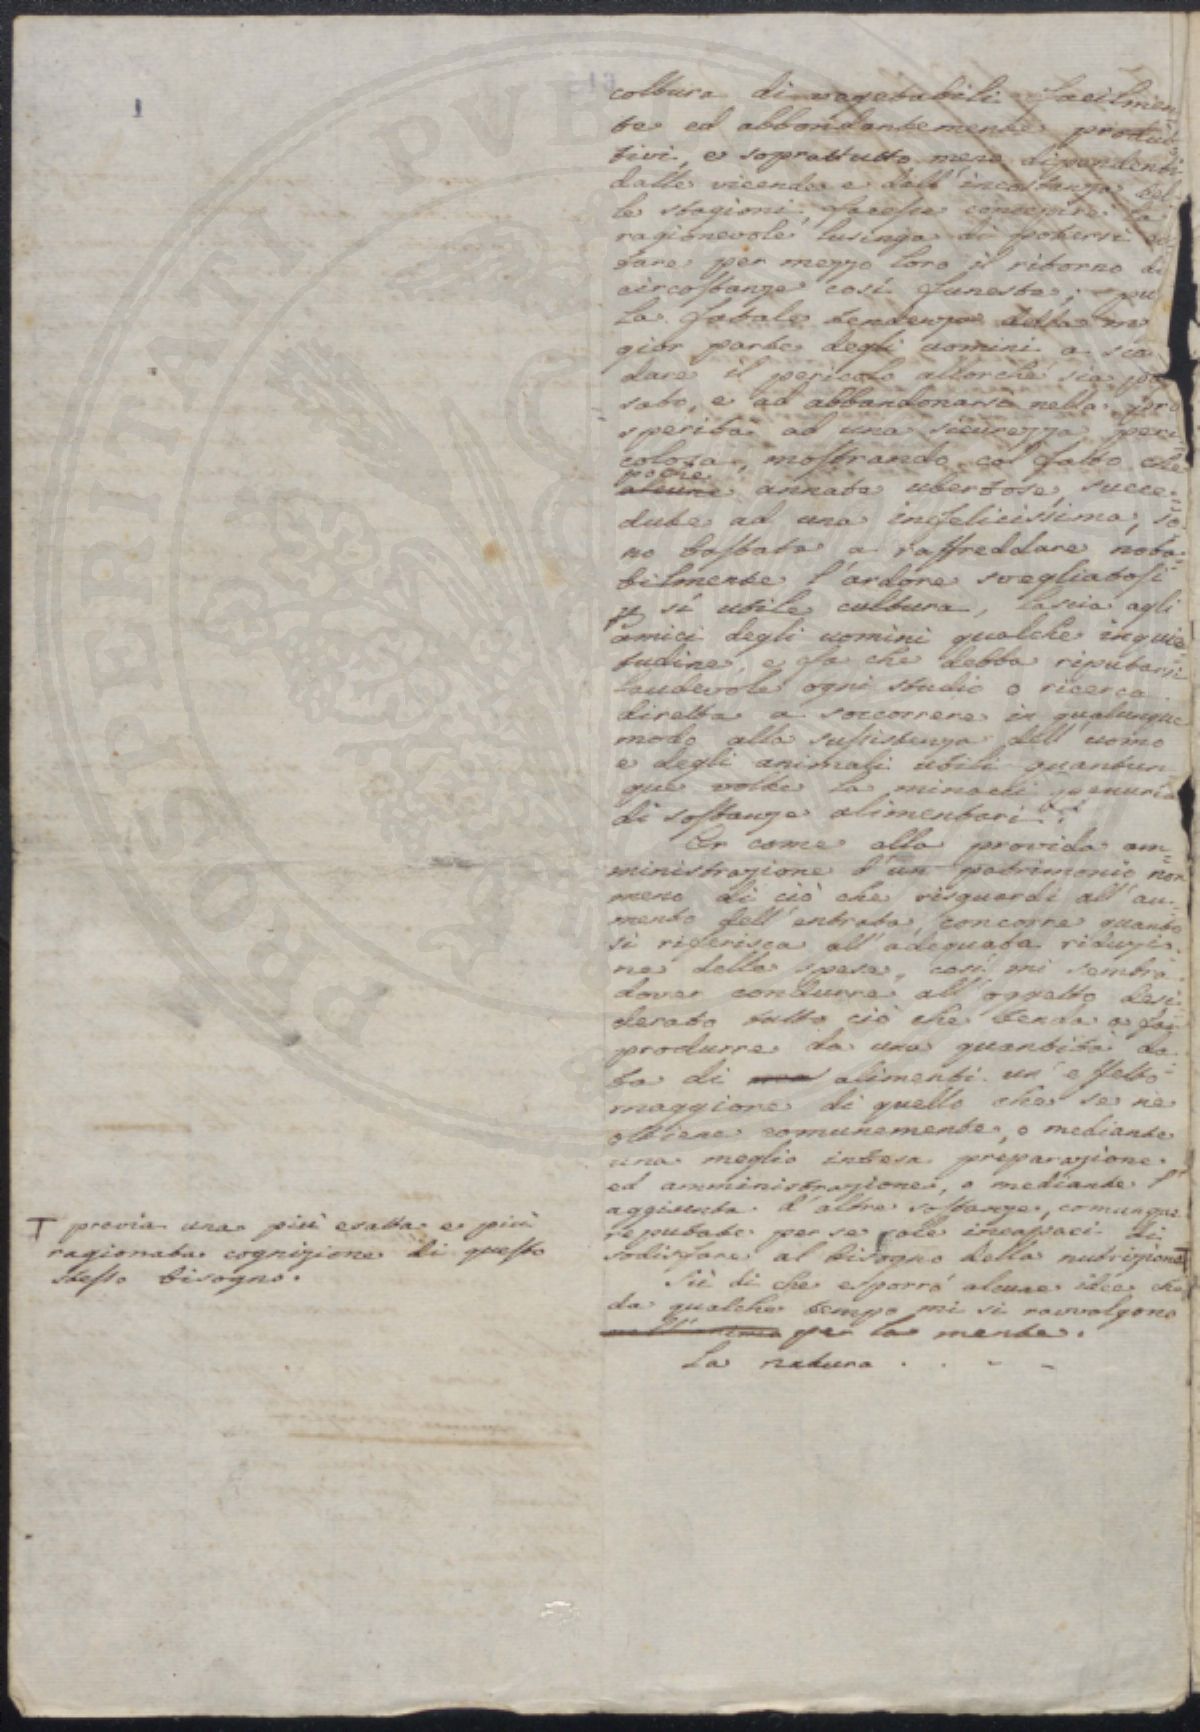 1
coltura di vegetabili facilmen
te ed abbondantemente produt
tivi, e soprattutto meno dipendenti
dalle vicende e dall'incostanza del
le stagioni, facesse concepire la
ragionevole lusinga di potersi evi
tare per mezzo loro il ritorno di
circostanze così funeste; pu
la fatale tendenza della m
gior parte degli uomini a sco
dare il pericolo allorchè sia pas
sato, e ad abbandonarsi nella pro
sperità ad una sicurezza peri
colosa, mostrando col fatto che
poche
alcune annate ubertose, succe=
dute ad una infelicissima, so=
no bastate a raffreddare nota=
bilmente l'ardore svegliatosi
p sì utile cultura, lascia agli
amici degli uomini qualche inquie=
tudine, e fa che debba riputarsi
laudevole ogni studio o ricerca
diretta a soccorrere in qualunque
modo alla sussistenza dell'uomo
e degli animali utili quantun
que volte la minacci penuria
di sostanze alimentari.
Or come alla provida am=
ministrazione d'un patrimonio non
meno di ciò che risguardi all'au=
mento dell'entrata, concorre quanto
si riferisca all'adeguata riduzio
ne delle spese, così mi sembra
dover condurre all'oggetto desi
derato tutto ciò che tenda a far
produrre da una quantità da
ta di alimenti un'effetto
maggiore di quello che se ne
ottiene comunemente, o mediante
una meglio intesa preparazione
ed amministrazione, o mediante l'
aggiunta d'altre sostanze, comunque
reputate per se sole incapaci di
sodisfare al bisogno della nutrizione T
T previa una più esatta e più
ragionata cognizione di questo
stesso bisogno.
Sù di che esporrò alcune idee che
da qualche tempo mi si ravvolgono
per la mente.
La natura . . . .